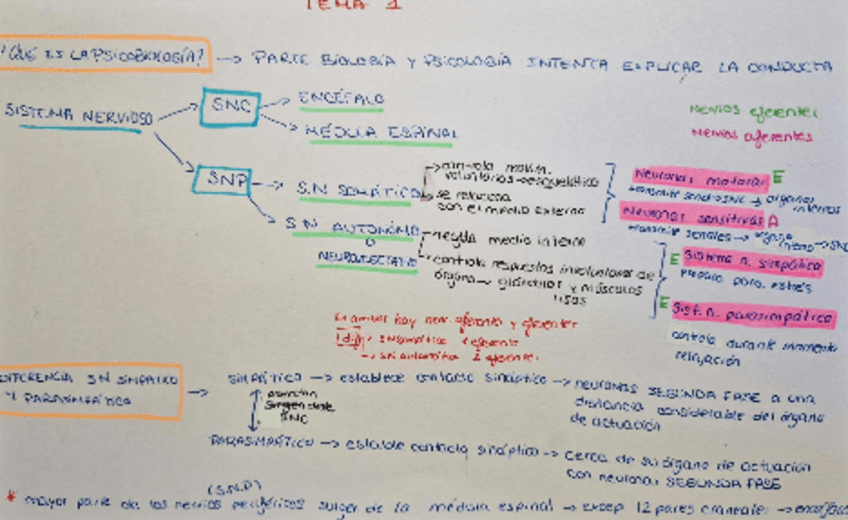 TEMA 1
¿QUÉ ES LA PSICOBIOLOGÍA? → PARTE BIOLOGÍA Y PSICOLOGÍA INTENTA EXPLICAR LA CONDUCTA
SISTEMA NERVIOSO
SNC
ENCÉFALO
MÉDULA ESPINAL
Nervios eferentes
Nervios aferentes
SNP
S.N SOMÁTICO
→ controla movim.
voluntarios → esquelético
→ se relaciona
con el medio externo
Neuronas motoras E
transmite → órganos
internos
Neuronas sensitivas A
transmite señales → órgano
interno → SNC
S N AUTÓNOMO
O
→ regula medio interno
→ controla respuestas involuntarias de
órgano → glándulas y músculos
lisos
E Sistema n. simpático
prepara para estrés
E Sist. n. parasimpático
controla durante momento
relajación
En ambos hay nerv. aferente y eferentes
DIFERENCIA SN SIMPÁTICO
Y PARASIMPÁTICO
→ SIMPÁTICO → establece contacto sináptico → neuronas SEGUNDA FASE a una
distancia considerable del órgano
de actuación
SNC
PARASIMPÁTICO → estable contacto sináptico → cerca de su órgano de actuación
con neuronas SEGUNDA FASE
(S.N.P)
* mayor parte de los nervios periféricos surgen de la médula espinal → excep 12 pares craneales → encéfalo